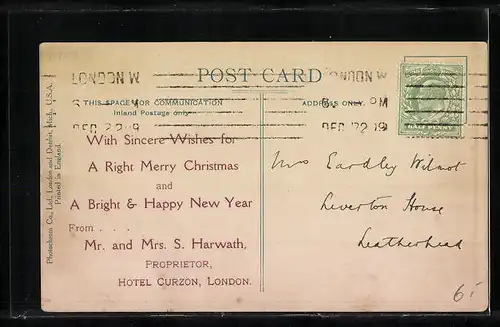 LONDON W
POST CARD
LONDON W
THIS SPACE FOR COMMUNICATION
Inland Postage only.
ADDRESS ONLY.
6 PM
DEC 22 19
DEC 22 19
HALF PENNY
With Sincere Wishes for
A Right Merry Christmas
and
A Bright & Happy New Year
From . . .
Mr. and Mrs. S. Harwath,
PROPRIETOR,
HOTEL CURZON, LONDON.
Photochrom Co., Ltd., London and Detroit, Mich., U.S.A.
Printed in England.
Mrs Eardley Wilmot
Leverton House
Leatherhead